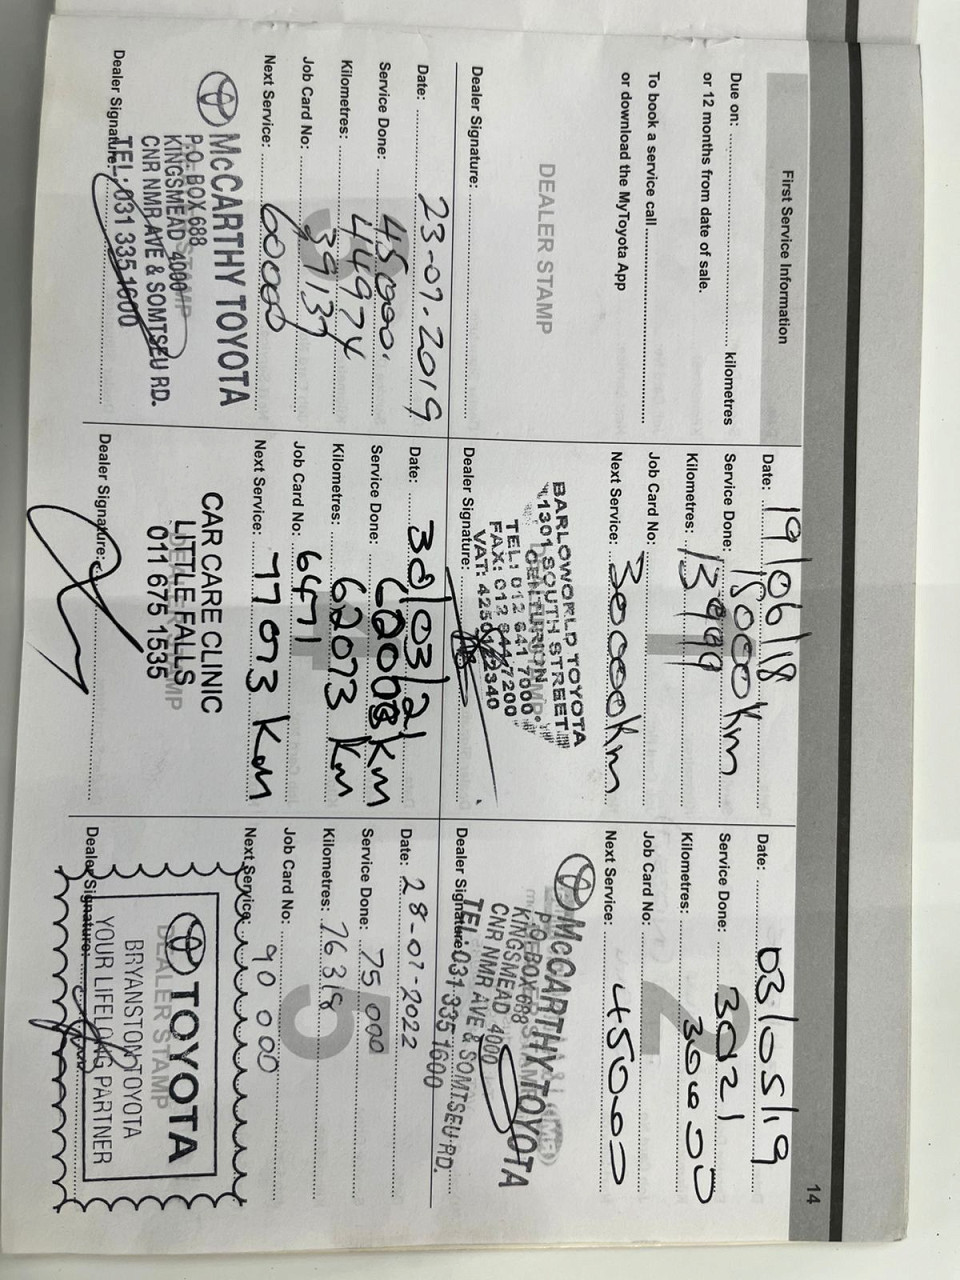 14
First Service Information
Due on: kilometres
or 12 months from date of sale.
To book a service call
or download the MyToyota App
DEALER STAMP
Dealer Signature:
1
Date: 19/06/18
Service Done: 15000Km
Kilometres: 13999
Job Card No:
Next Service: 30000Km
BARLOWORLD TOYOTA
1301 SOUTH STREET
CENTURION
TEL: 012 641 7000
FAX: 012 7200
VAT:
Dealer Signature:
2
Date: 03/05/19
Service Done: 30021
Kilometres: 30000
Job Card No:
Next Service: 45000
McCARTHY TOYOTA
P.O. BOX 688
KINGSMEAD 4000
CNR NMR AVE & SOMTSEU RD.
TEL: 031 335 1600
Dealer Signature:
3
Date: 23-07-2019
Service Done: 45000
Kilometres: 44974
Job Card No: 39137
Next Service: 60000
McCARTHY TOYOTA
P.O. BOX 688
KINGSMEAD 4000
CNR NMR AVE & SOMTSEU RD.
TEL: 031 335 1600
Dealer Signature:
4
Date: 30/03/21
Service Done: Km
Kilometres: 62073 Km
Job Card No: 6471
Next Service: 77073 Km
CAR CARE CLINIC
LITTLE FALLS
011 675 1535
Dealer Signature:
5
Date: 28-07-2022
Service Done: 75 000
Kilometres: 76318
Job Card No:
Next Service: 90 000
TOYOTA
DEALER STAMP
BRYANSTON TOYOTA
YOUR LIFELONG PARTNER
Dealer Signature: